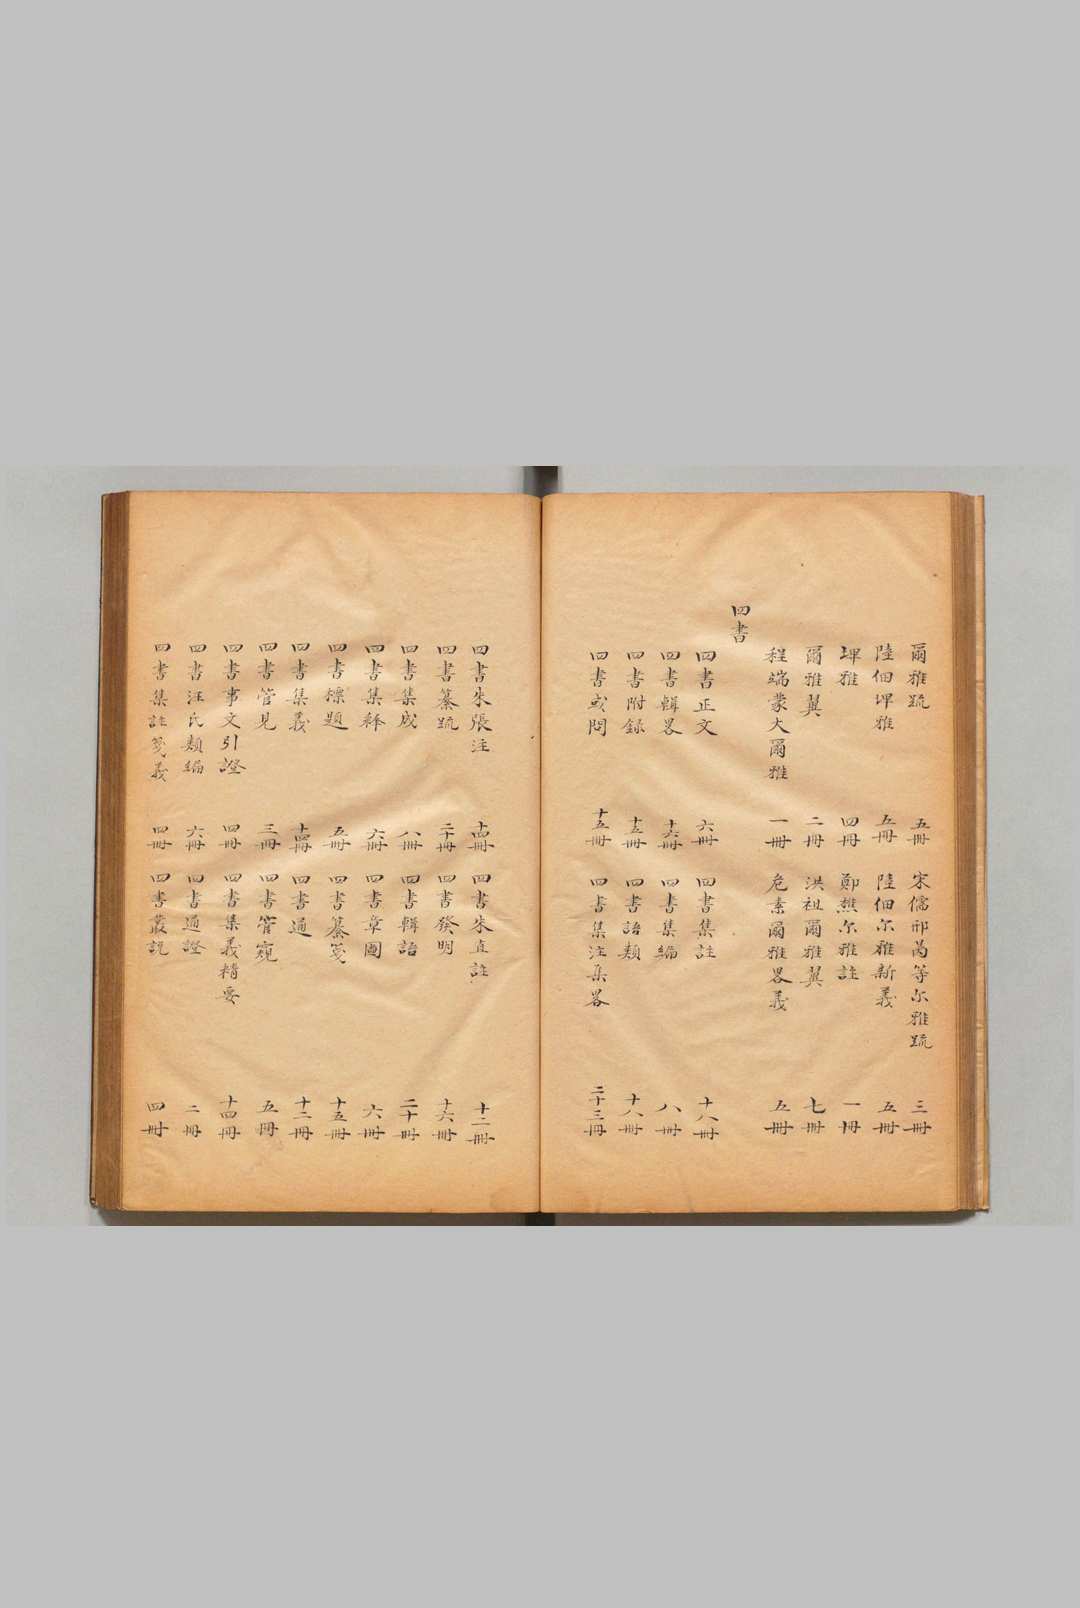 爾雅䟽　五冊　宋儒邢昺等尔雅䟽　三冊
陸佃埤雅　五冊　陸佃尔雅新義　五冊
埤雅　四冊　鄭樵尔雅註　一冊
爾雅翼　二冊　洪祖爾雅翼　七冊
程端蒙大爾雅　一冊　危素爾雅畧義　五冊
四書
四書正文　六冊　四書集註　十八冊
四書輯畧　十六冊　四書集編　八冊
四書附録　十五冊　四書語類　十八冊
四書或問　十五冊　四書集注集畧　二十三冊
四書朱張注　十四冊　四書朱直註　十二冊
四書纂䟽　二十冊　四書發明　十六冊
四書集成　八冊　四書輯語　二十冊
四書集釋　六冊　四書章圖　六冊
四書標題　五冊　四書纂箋　十五冊
四書集義　十四冊　四書通　十二冊
四書管見　三冊　四書管窺　五冊
四書事文引證　四冊　四書集義精要　十四冊
四書汪氏類編　六冊　四書通證　二冊
四書集註箋義　四冊　四書叢説　四冊